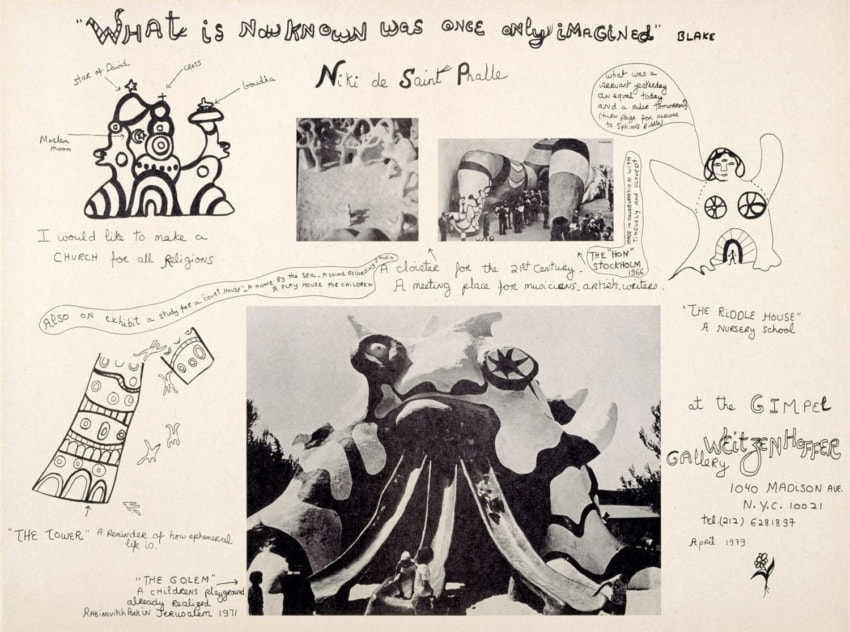 "WHAT is NOW KNOWN WAS ONCE ONLY iMAGiNED" BLAKE
Niki de Saint Phalle
star of David
cross
boudha
Moslem
moon
I would like to make a
CHURCH for all RELigions
what was a
servant yesterday
an equal today
and a ruler tomorrow?
(turn page for answer
to Sphinx Riddle)
MADE IN COLLABORATION WITH
TINGUELY AND ULTVEDT
THE "HON"
STOCKHOLM
1966
A cloister for the 21st Century.
A meeting place for musicians, artists, writers.
Also on exhibit a study for a "Guest House" _ A HOME BY THE SEA _ A SOUND RECORDING STUDIO
A PLAY HOUSE FOR CHILDREN
"THE RiDDLE HOUSE"
A NURSERY SCHOOL
at the GIMPEL
WEITZENHOFFER
GALLERY
1040 MADISON AVE.
N.Y.C. 10021
Tel (212) 6281897
April 1979
"THE TOWER" A Reminder of how ephemeral
life is.
"THE GOLEM"
A CHILDRENS playground
already Realized
RABINOVITCH PARK IN JERUSALEM 1971